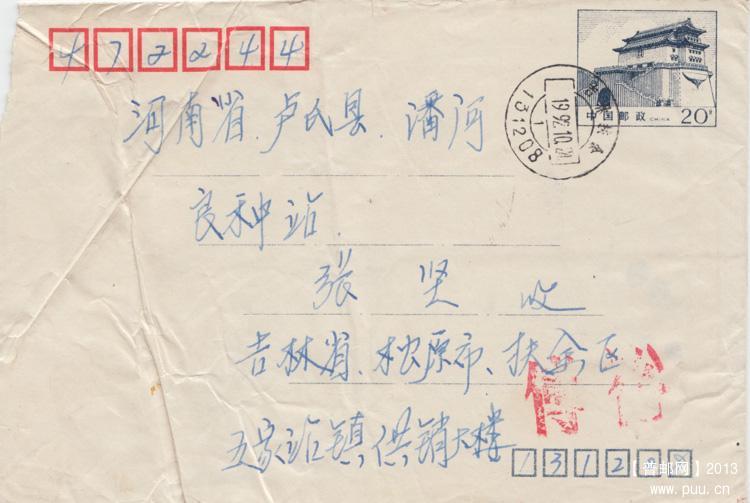 472244
中国邮政 CHINA 20分
1992.10.
131208
河南省.卢氏县.潘河
良种站.
张 坚 收
吉林省.松原市.扶余区
五家站镇供销大楼
131208
【普邮网】2013
www.puu.cn